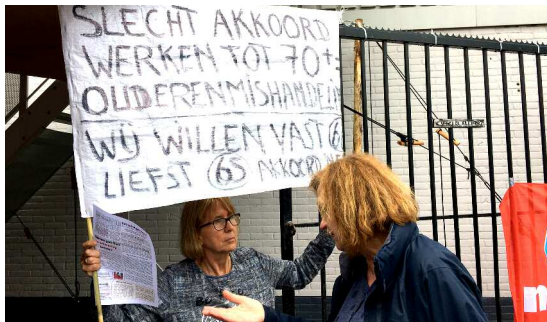 SLECHT AKKOORD
WERKEN TOT 70+
OUDERENMISHANDELIN
WIJ WILLEN VAST
LIEFST 65 AKKOORD